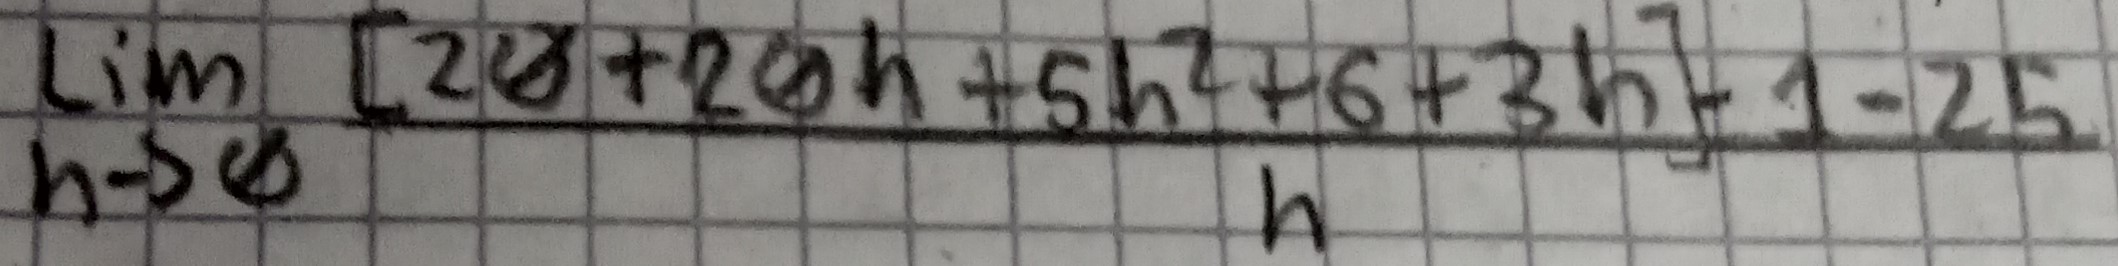 Lim [20+20h+5h²+6+3h]-1-25
h->0 h